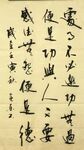 處世不必邀功無過
便是功與人不要
感德無怨便是德